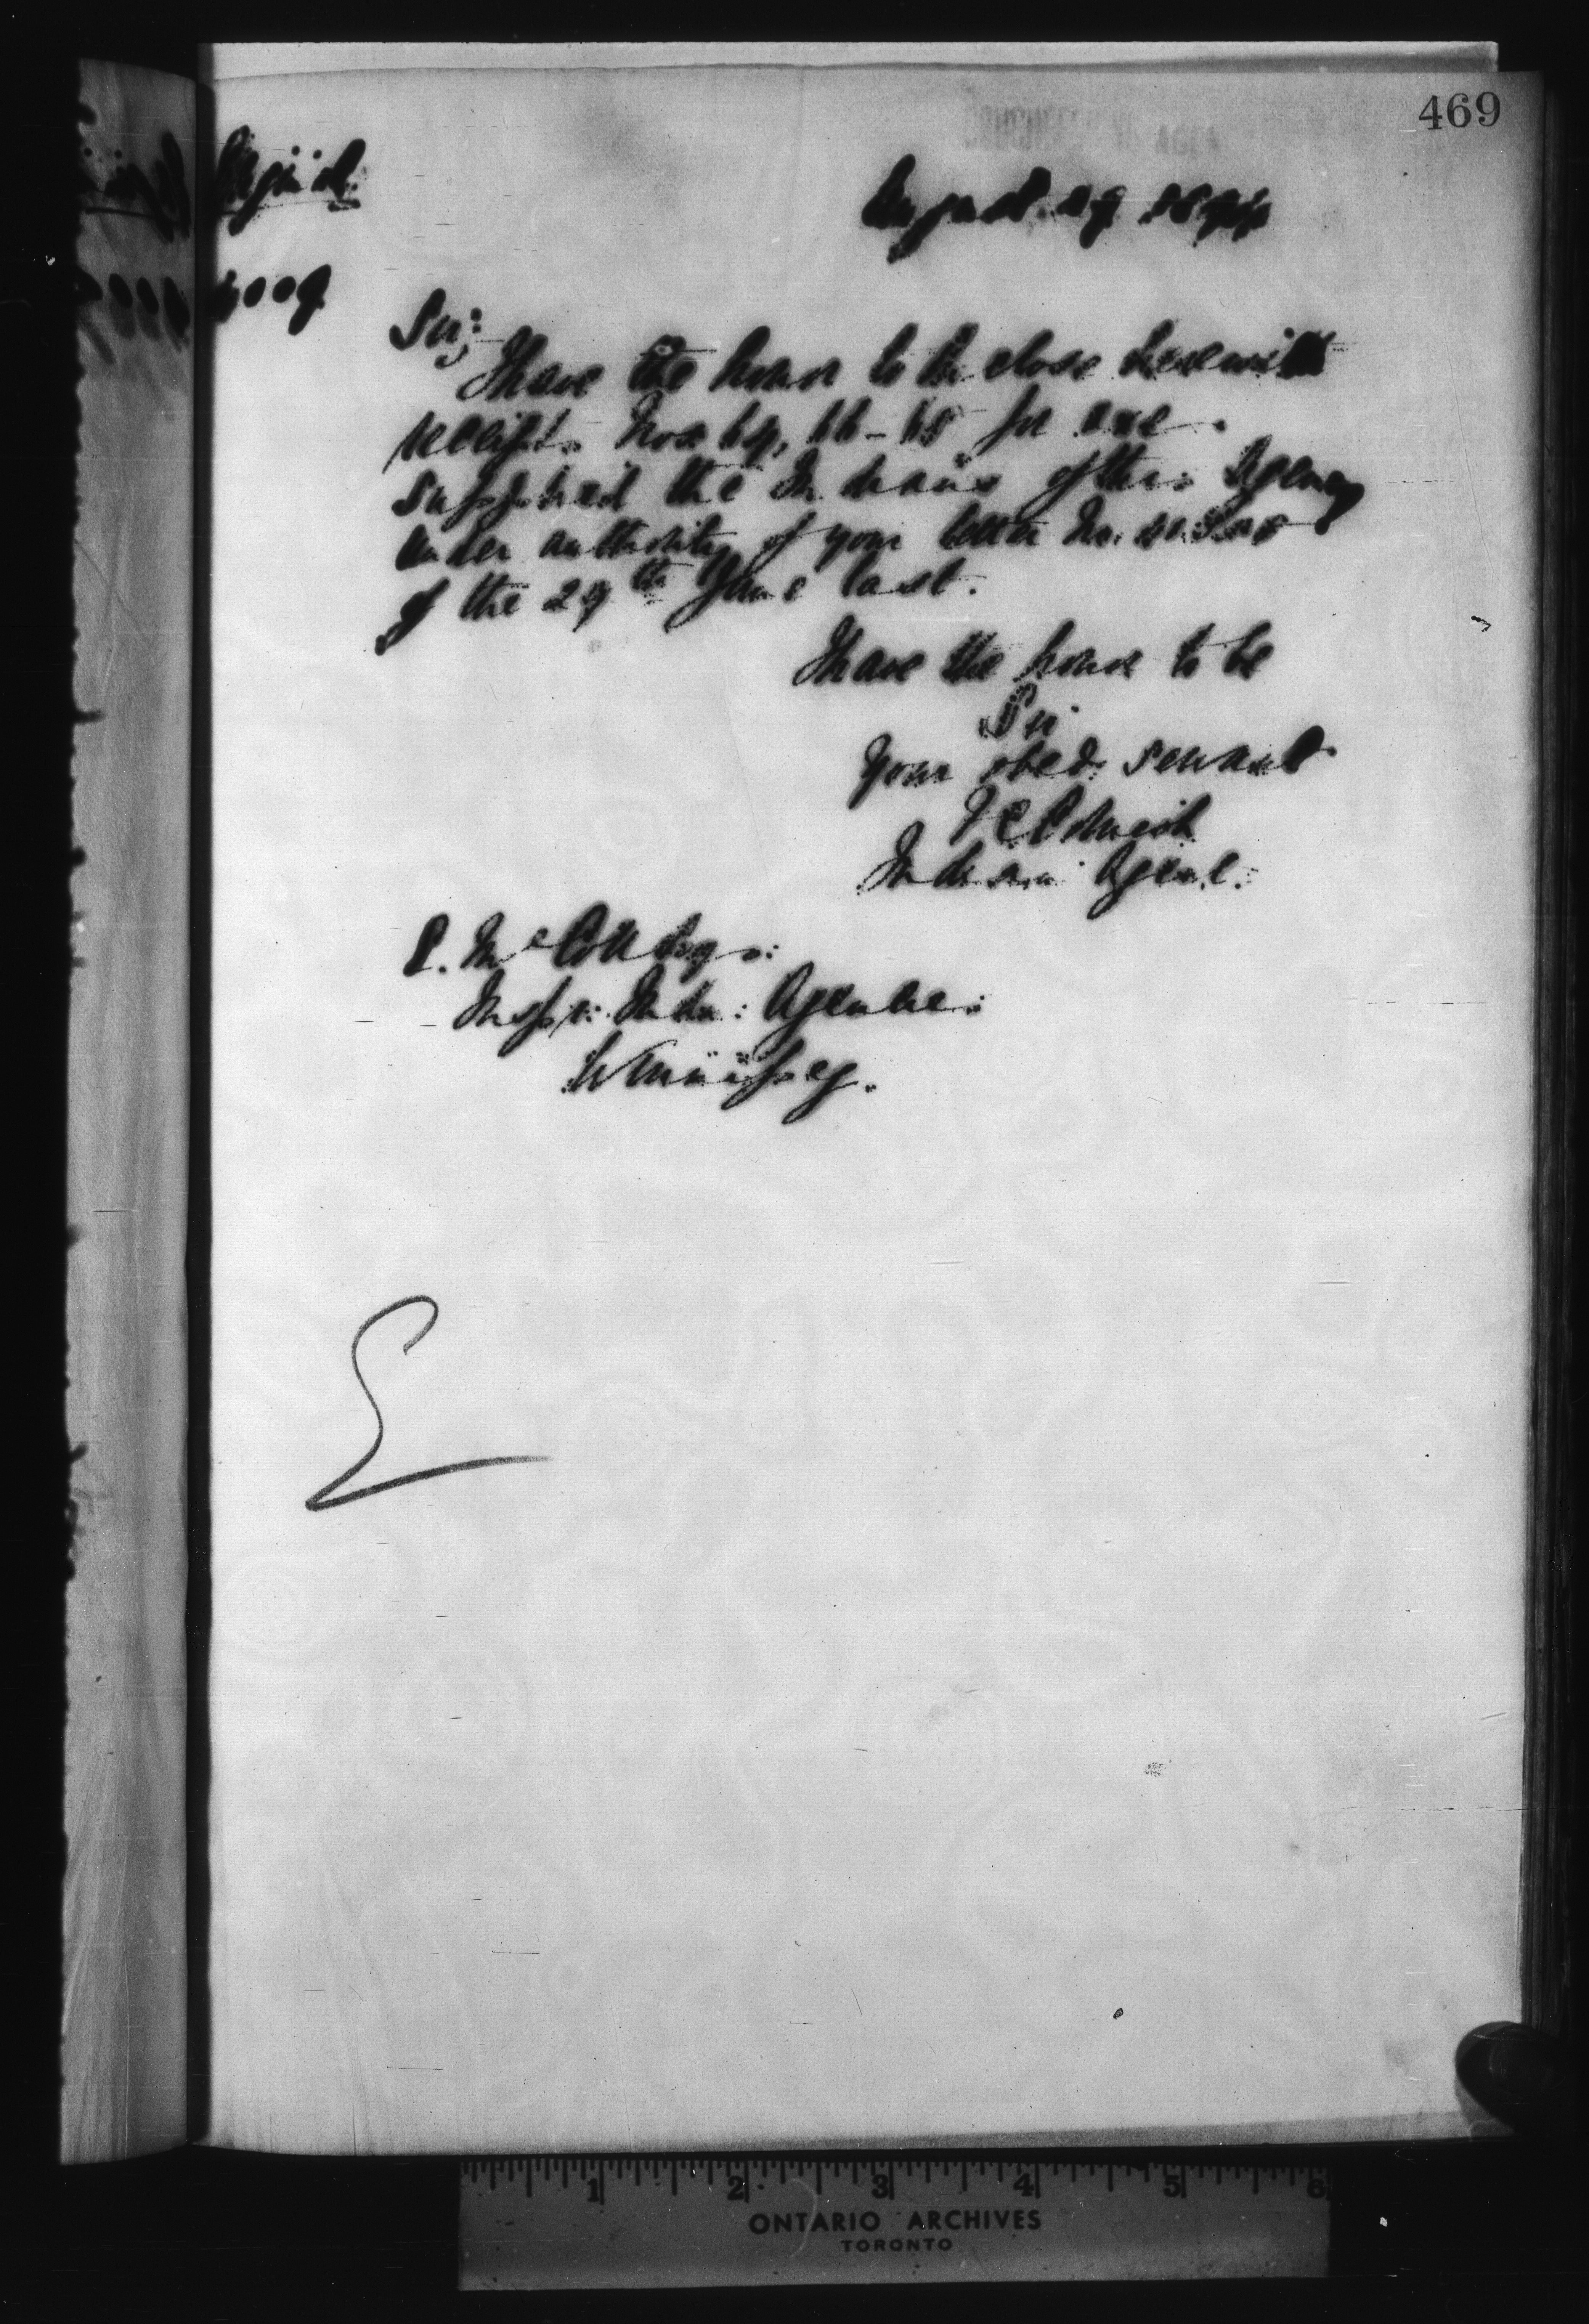 469
August 29
Sir,
I have the honor to Inclose herewith
receipts Nos 64, 66-68 for
Supplied the Indians of this Agency
under authority of your letter No.
of the 29th June last.
I have the honor to be
Sir
Your obed. servant
Indian Agent.
E. McColl Esq:
Inspr: Indn: Agencies:
Winnipeg.
1 2 3 4 5 6
ONTARIO ARCHIVES
TORONTO